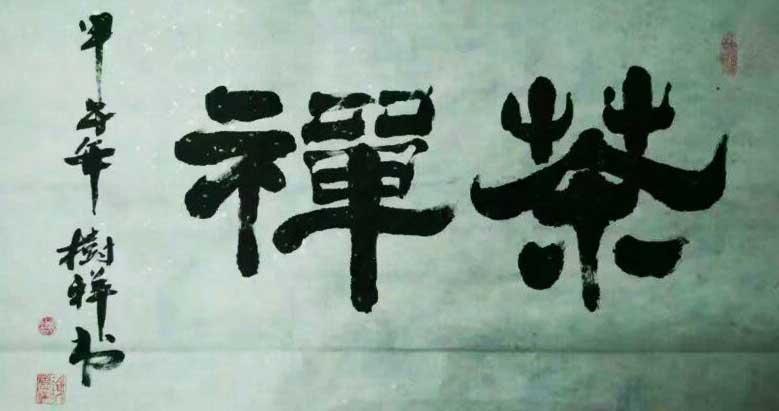 茶禪
甲午年
樹祥书